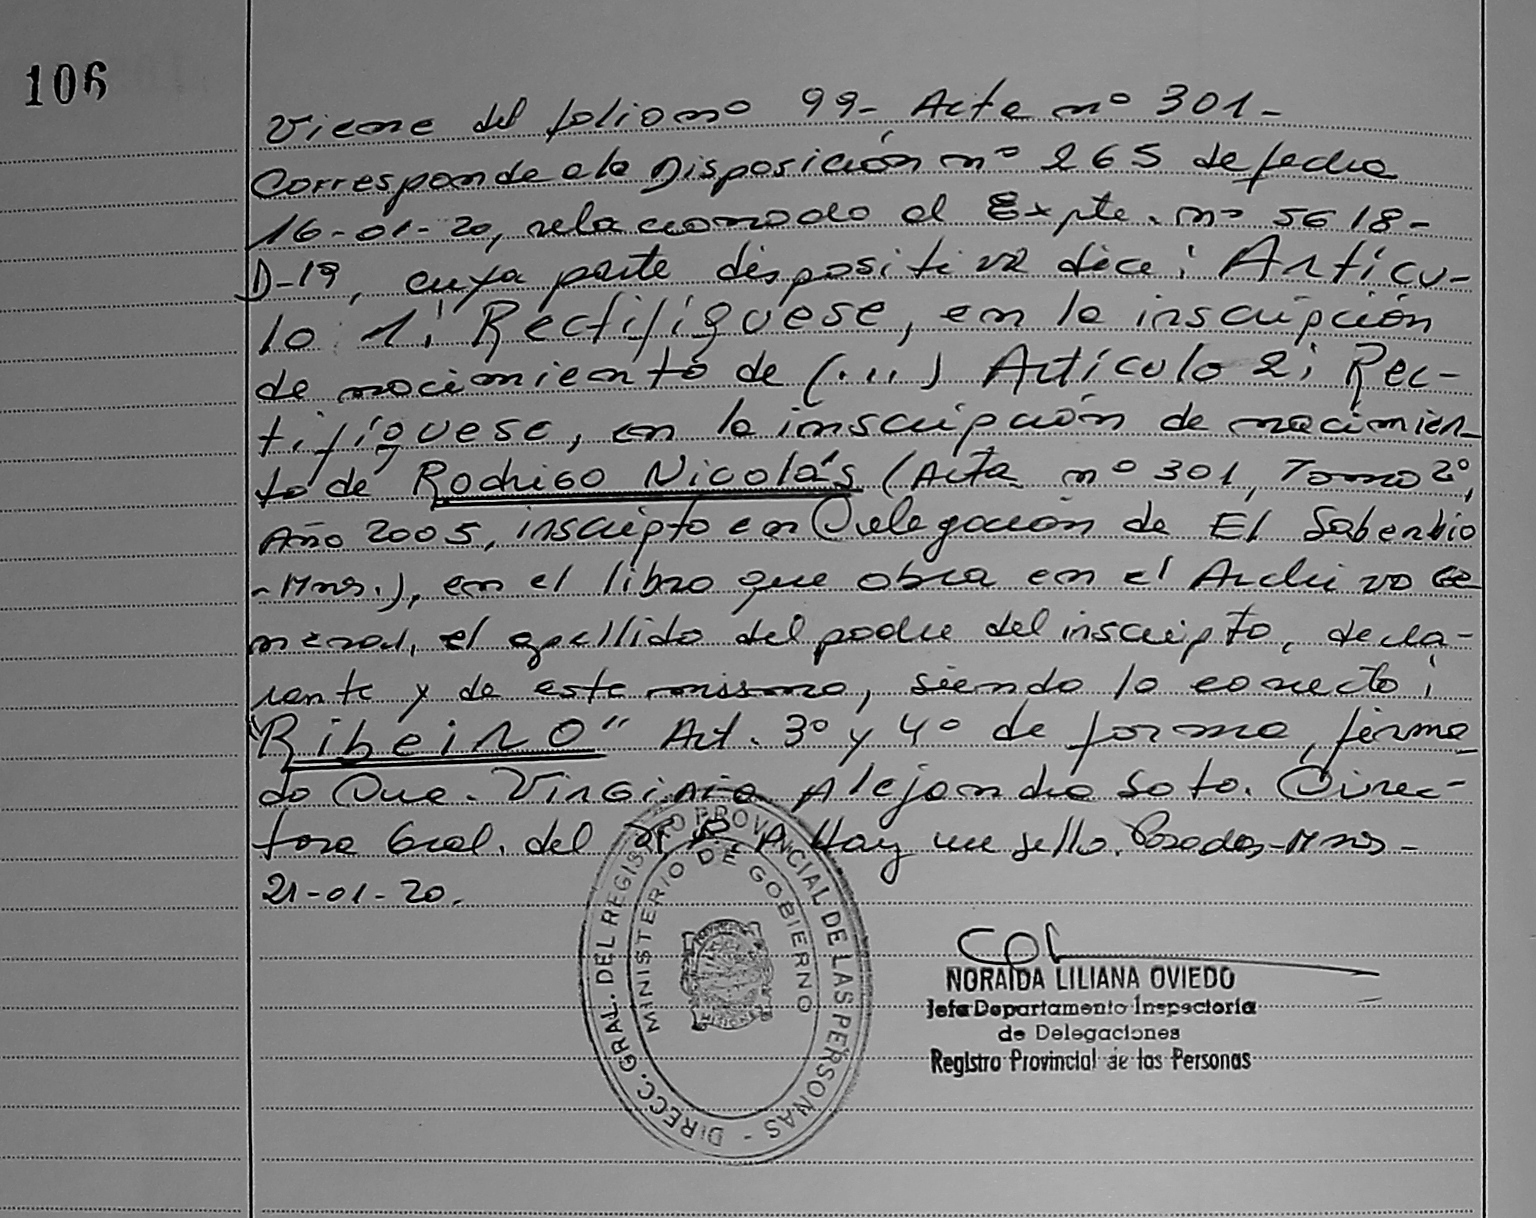 106
Viene del folio nº 99- Acta nº 301-
Corresponde a la Disposición nº 265 de fecha
16-01-20, relacionado al Expte. nº 5618-
D-19, cuya parte dispositiva dice: Artícu-
lo 1: Rectifíquese, en la inscripción
de nacimiento de (...) Artículo 2: Rec-
tifíquese, en la inscripción de nacimien-
to de Rodrigo Nicolás (Acta nº 301, Tomo 2º,
Año 2005, inscripto en Delegación de El Soberbio
-Mns.), en el libro que obra en el Archivo Ge
neral, el apellido del padre del inscripto, decla-
rante y de este mismo, siendo lo correcto:
"Ribeiro" Art. 3º y 4º de forma, firma
do Dra. Virginia Alejandra Soto. Direc-
tora Gral. del R.P. Hay un sello. Posadas-Mns-
21-01-20.
DIRECC. GRAL. DEL REGISTRO PROVINCIAL DE LAS PERSONAS -
MINISTERIO DE GOBIERNO
NORAIDA LILIANA OVIEDO
Jefa Departamento Inspectoría
de Delegaciones
Registro Provincial de las Personas